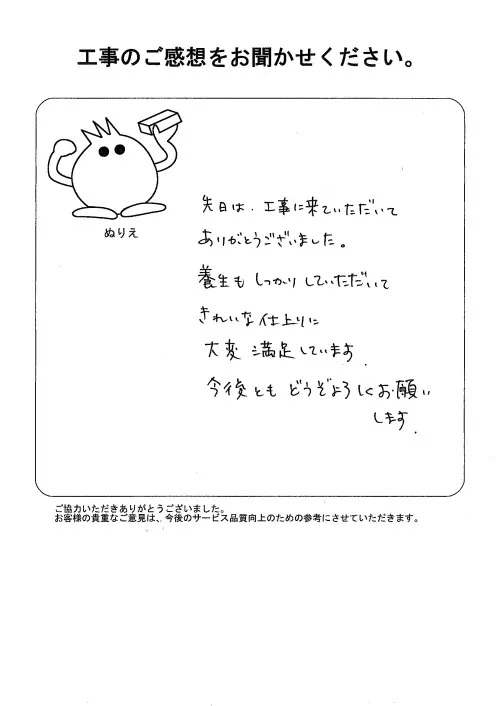 工事のご感想をお聞かせください。
ぬりえ
先日は、工事に来ていただいて
ありがとうございました。
養生もしっかりしていただいて
きれいな仕上りに
大変満足しています.
今後ともどうぞよろしくお願い
します.
ご協力いただきありがとうございました。
お客様の貴重なご意見は、今後のサービス品質向上のための参考にさせていただきます。